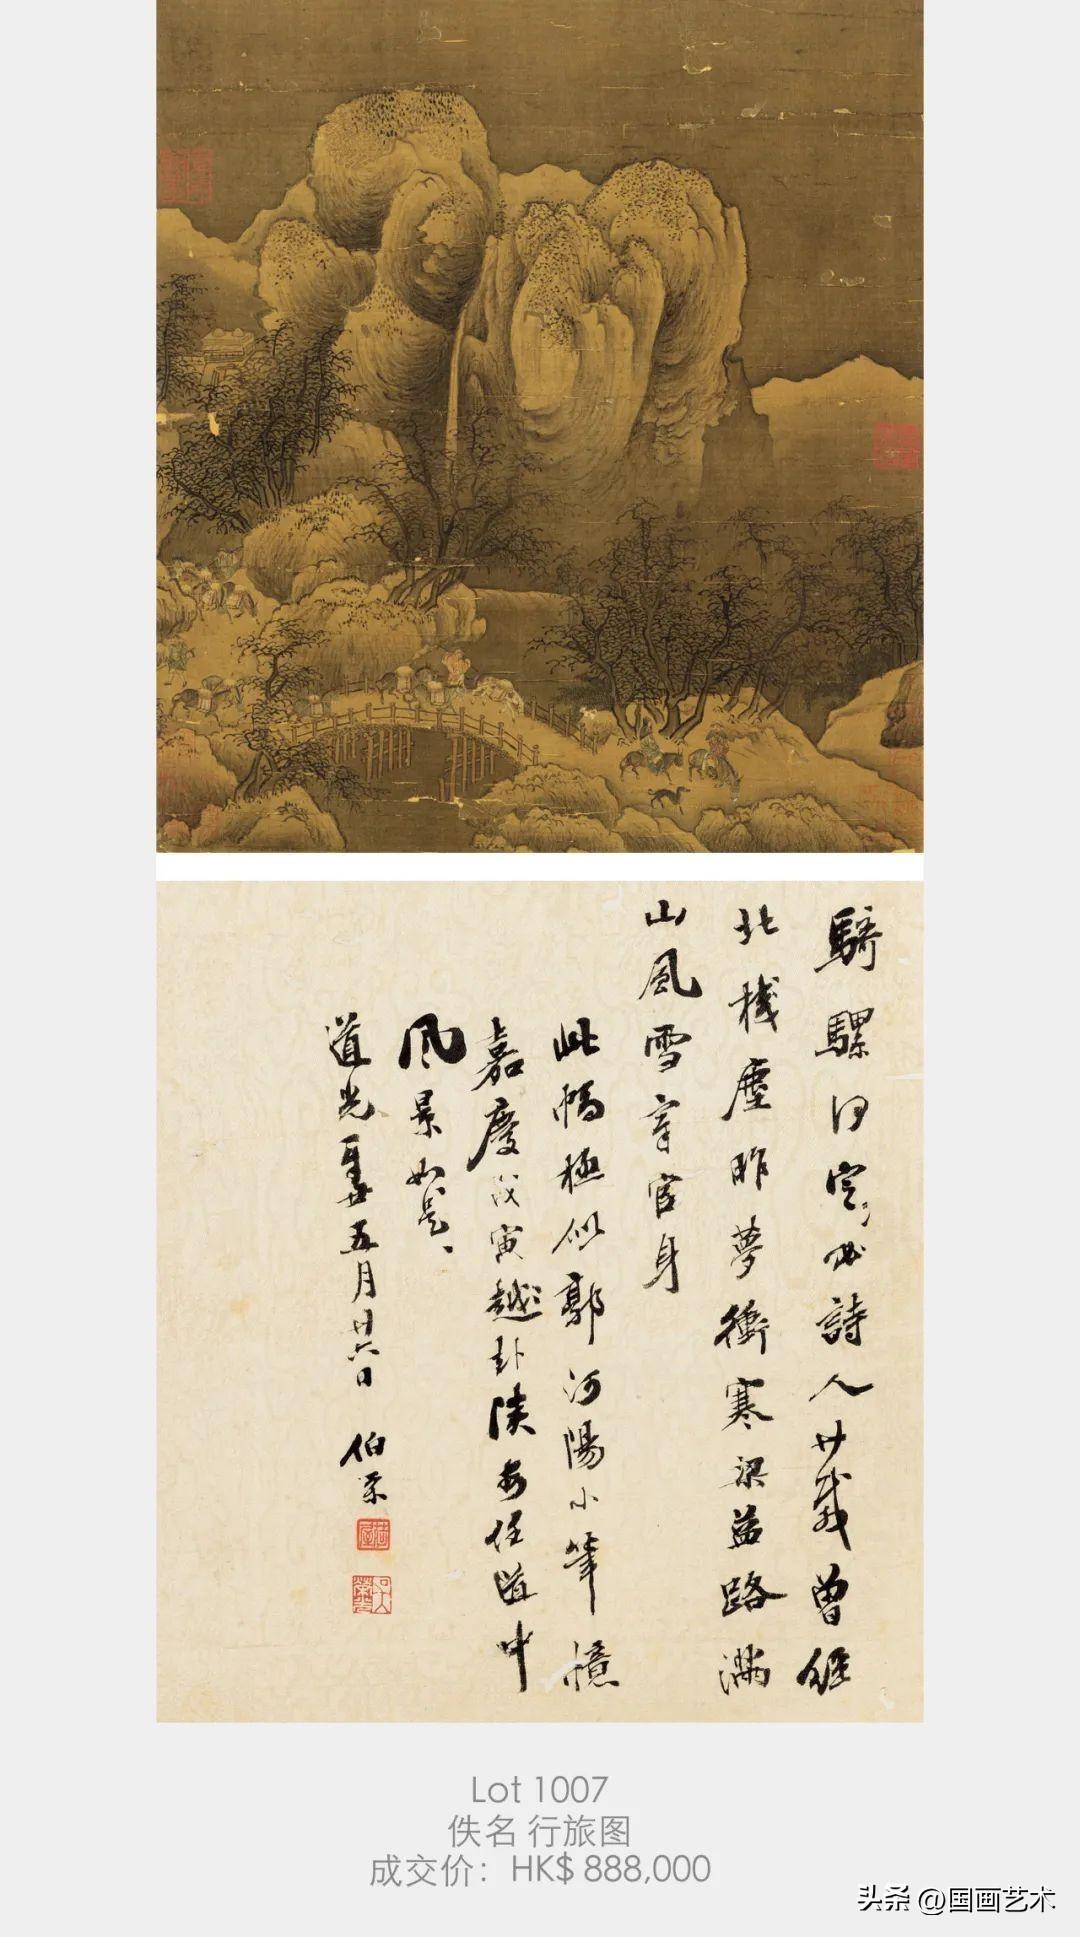 騎騾何定必詩人廿載曾經
北棧塵昨夢衝寒梁益路滿
山風雪宰官身
此幅極似郭河陽小筆憶
嘉慶戊寅越赴陝安任道中
風景如是
道光五月廿六日 伯榮
Lot 1007
佚名 行旅图
成交价：HK$ 888,000
头条 @国画艺术